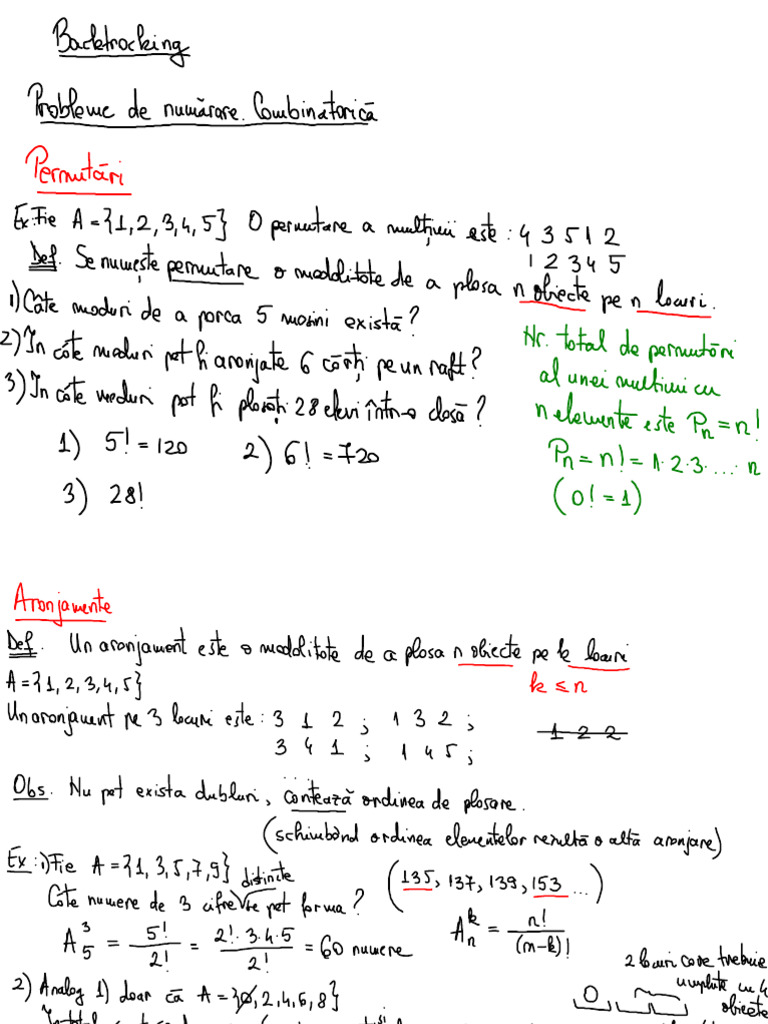 Backtracking
Probleme de numărare. Combinatorică
Permutări
Ex: Fie A = {1, 2, 3, 4, 5} O permutare a mulțimii este : 4 3 5 1 2
1 2 3 4 5
Def. Se numește permutare o modalitate de a plasa n obiecte pe n locuri.
1) Câte moduri de a parca 5 mașini există?
2) În câte moduri pot fi aranjate 6 cărți pe un raft?
3) În câte moduri pot fi plasați 28 elevi într-o clasă?
1) 5! = 120 2) 6! = 720
3) 28!
Nr. total de permutări
al unei mulțimi cu
n elemente este Pn = n!
Pn = n! = 1·2·3·....· n
(0! = 1)
Aranjamente
Def. Un aranjament este o modalitate de a plasa n obiecte pe k locuri
k ≤ n
A = {1, 2, 3, 4, 5}
Un aranjament pe 3 locuri este : 3 1 2 ; 1 3 2 ;
3 4 1 ; 1 4 5 ;
1 2 2
Obs. Nu pot exista dubluri, contează ordinea de plasare.
(schimbând ordinea elementelor rezultă o altă aranjare)
Ex: 1) Fie A = {1, 3, 5, 7, 9}
distincte
Câte numere de 3 cifre pot forma? (135, 137, 139, 153 ...)
A_5^3 = 5!/2! = 2!·3·4·5/2! = 60 numere
A_n^k = n!/(n-k)!
2) Analog 1) doar că A = {0, 2, 4, 6, 8}
2 locuri care trebuie
umplute cu 4
obiecte
0